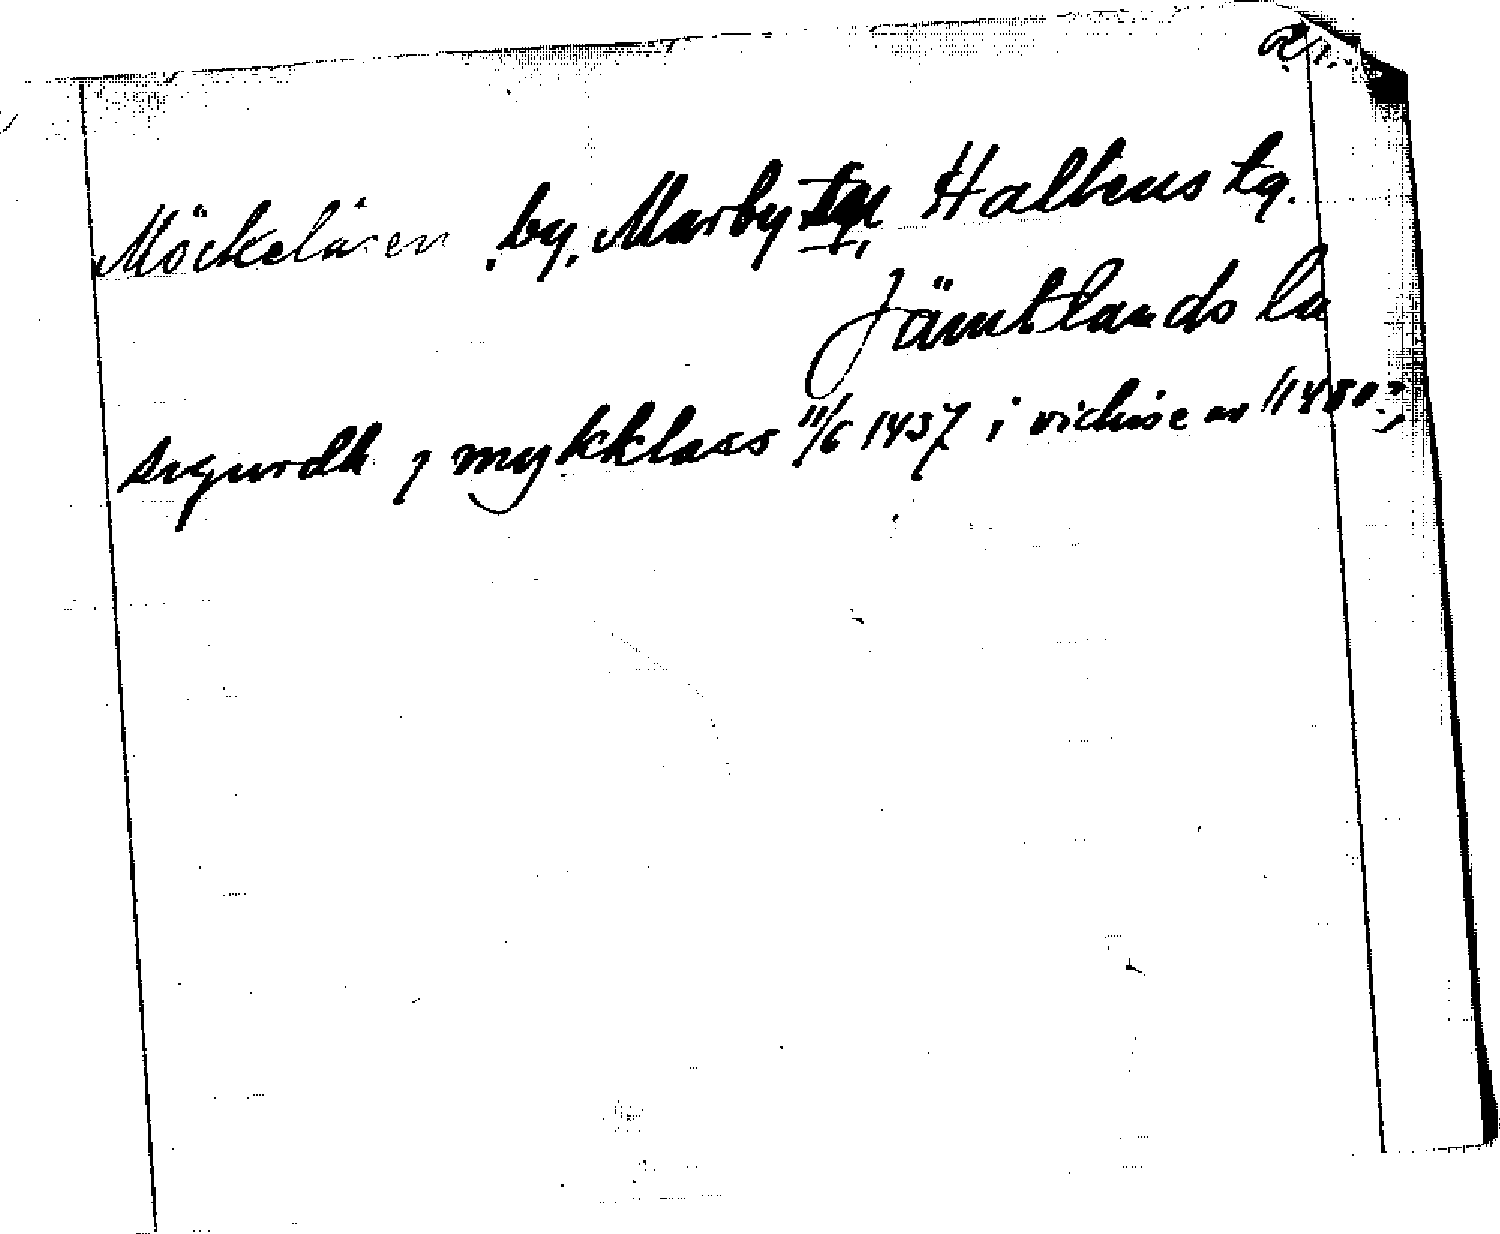 Möckelåsen by, Marby sn Hallens tg.
Jämtlands la
sigurdh j mykklaas 11/6 1437 i vidise av